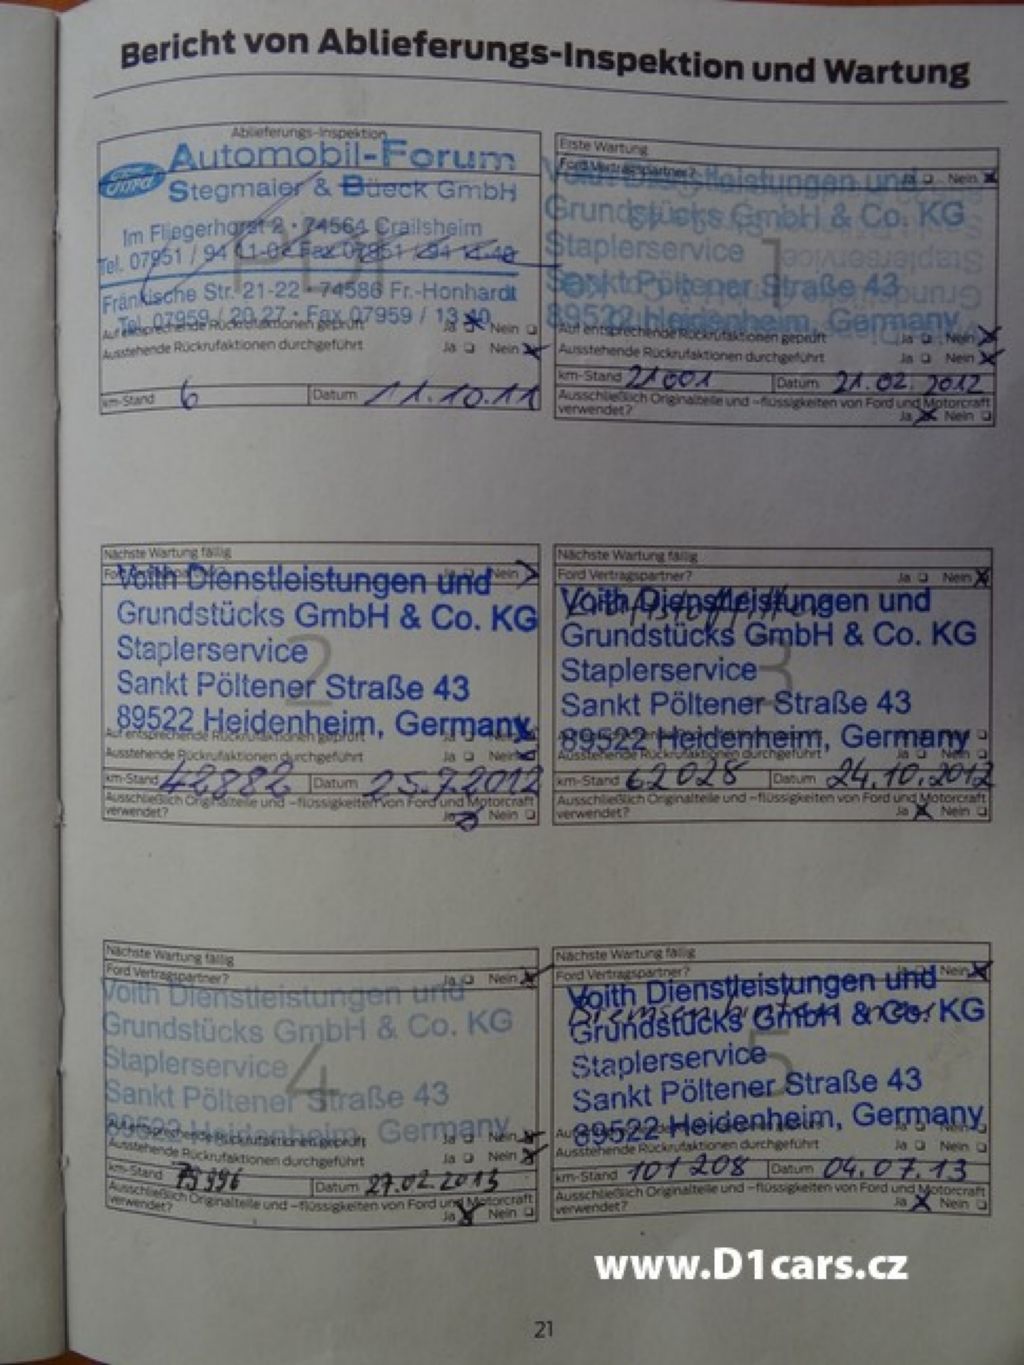 Bericht von Ablieferungs-Inspektion und Wartung
Ablieferungs-Inspektion
Ford
Automobil-Forum
Stegmaier & Büeck GmbH
Im Fliegerhorst 2 · 74564 Crailsheim
Tel. 07951 / 94 11-0 Fax 07951 / 94 11 40
Fränkische Str. 21-22 · 74586 Fr.-Honhardt
Tel. 07959 / 20 27 · Fax 07959 / 13 40
Auf entsprechende Rückrufaktionen geprüft Ja Nein
Ausstehende Rückrufaktionen durchgeführt Ja Nein
km-Stand 6 Datum 11.10.11
Erste Wartung
Ford Vertragspartner? Ja Nein
Voith Dienstleistungen und
Grundstücks GmbH & Co. KG
Staplerservice
1
Sankt Pöltener Straße 43
89522 Heidenheim, Germany
Auf entsprechende Rückrufaktionen geprüft Ja Nein
Ausstehende Rückrufaktionen durchgeführt Ja Nein
km-Stand 21001 Datum 21.02.2012
Ausschließlich Originalteile und -flüssigkeiten von Ford und Motorcraft
verwendet? Ja Nein
Nächste Wartung fällig
Nein
Voith Dienstleistungen und
Grundstücks GmbH & Co. KG
Staplerservice
2
Sankt Pöltener Straße 43
89522 Heidenheim, Germany
Auf entsprechende Rückrufaktionen geprüft
Ausstehende Rückrufaktionen durchgeführt Ja Nein
km-Stand 42882 Datum 25.7.2012
Ausschließlich Originalteile und -flüssigkeiten von Ford und Motorcraft
verwendet? Ja Nein
Nächste Wartung fällig
Ford Vertragspartner? Ja Nein
Voith Dienstleistungen und
Grundstücks GmbH & Co. KG
Staplerservice
3
Sankt Pöltener Straße 43
89522 Heidenheim, Germany
Ausstehende Rückrufaktionen durchgeführt Ja Nein
km-Stand 62028 Datum 24.10.2012
Ausschließlich Originalteile und -flüssigkeiten von Ford und Motorcraft
verwendet? Ja Nein
Nächste Wartung fällig
Ford Vertragspartner? Ja Nein
Voith Dienstleistungen und
Grundstücks GmbH & Co. KG
Staplerservice
4
Sankt Pöltener Straße 43
89522 Heidenheim, Germany
Auf entsprechende Rückrufaktionen geprüft Ja Nein
Ausstehende Rückrufaktionen durchgeführt Ja Nein
km-Stand 79996 Datum 27.02.2013
Ausschließlich Originalteile und -flüssigkeiten von Ford und Motorcraft
verwendet? Ja Nein
Nächste Wartung fällig
Ford Vertragspartner? Nein
Voith Dienstleistungen und
Bremsen hinten neu
Grundstücks GmbH & Co. KG
Staplerservice
5
Sankt Pöltener Straße 43
89522 Heidenheim, Germany
Ausstehende Rückrufaktionen durchgeführt Ja Nein
km-Stand 101208 Datum 04.07.13
Ausschließlich Originalteile und -flüssigkeiten von Ford und Motorcraft
verwendet? Ja Nein
www.D1cars.cz
21